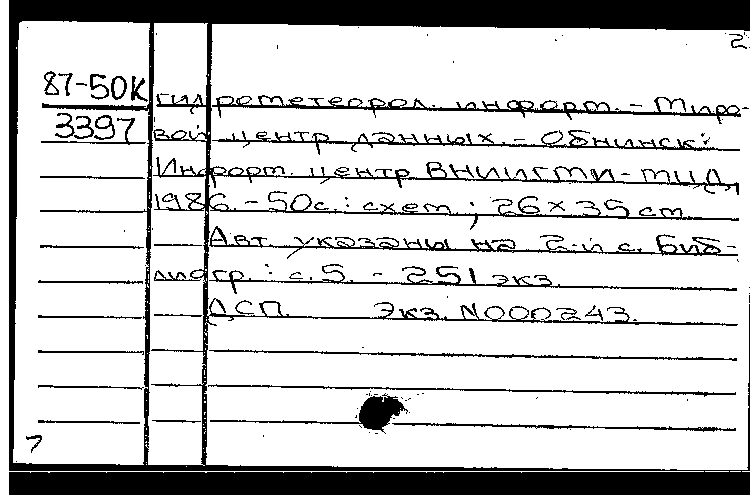 2
87-50К гидрометеорол. информ. - Миро-
3397 вой центр данных. - Обнинск:
Информ. центр ВНИИГМИ-МЦД,
1986. - 50с.: схем.; 26×35 см.
Авт. указаны на 2-й с. Биб-
лиогр.: с.5. - 251 экз.
ДСП. Экз. N000243.
7